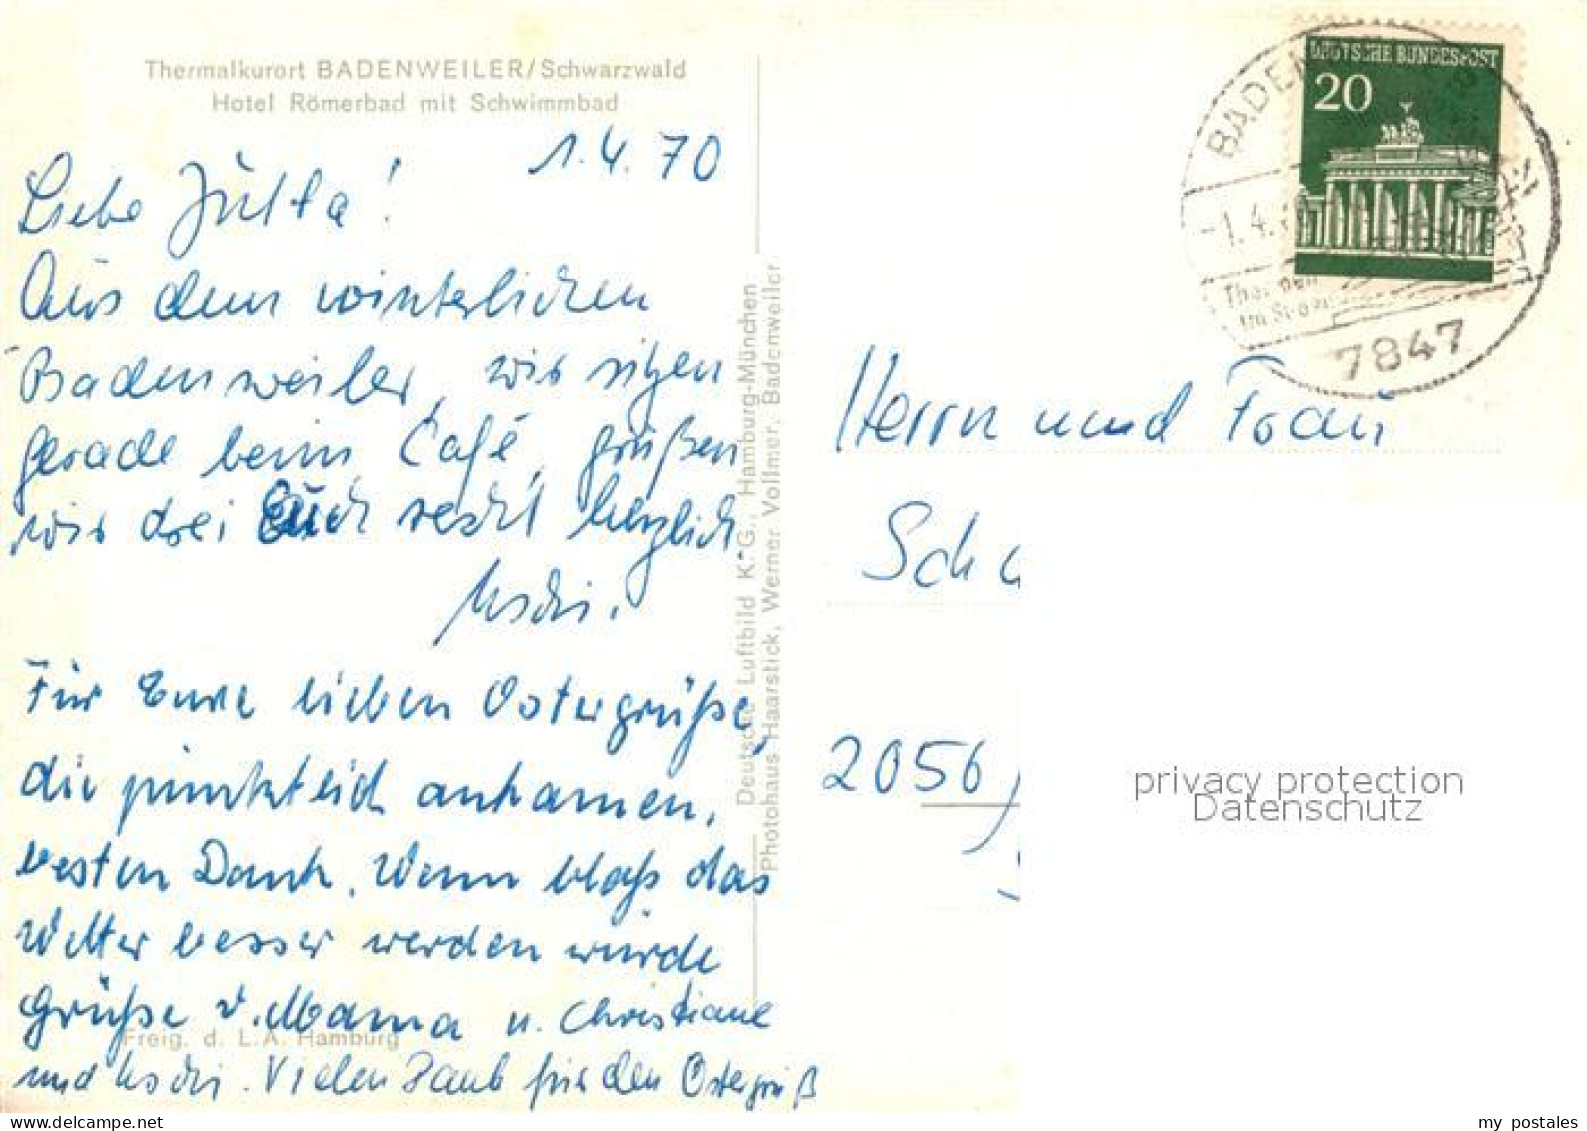 Thermalkurort BADENWEILER/Schwarzwald
Hotel Römerbad mit Schwimmbad
1.4.70
Liebe Jutta!
Aus dem winterlichen
Badenweiler, wir sitzen
gerade beim Café, grüßen
wir drei Euch recht herzlich.
Uschi.
Für Eure lieben Ostergrüße
die pünktlich ankamen,
besten Dank. Wenn bloß das
Wetter besser werden würde
Grüße v. Mama u. Christiane
und Uschi. Vielen Dank für den Ostergruß
Freig. d. L. A. Hamburg
Deutsche Luftbild K. G., Hamburg-München
Photohaus Haarstick, Werner Vollmer, Badenweiler
DEUTSCHE BUNDESPOST
20
-1.4.
7847
Herrn und Frau
Sch
2056
privacy protection
Datenschutz
www.delcampe.net
my_postales